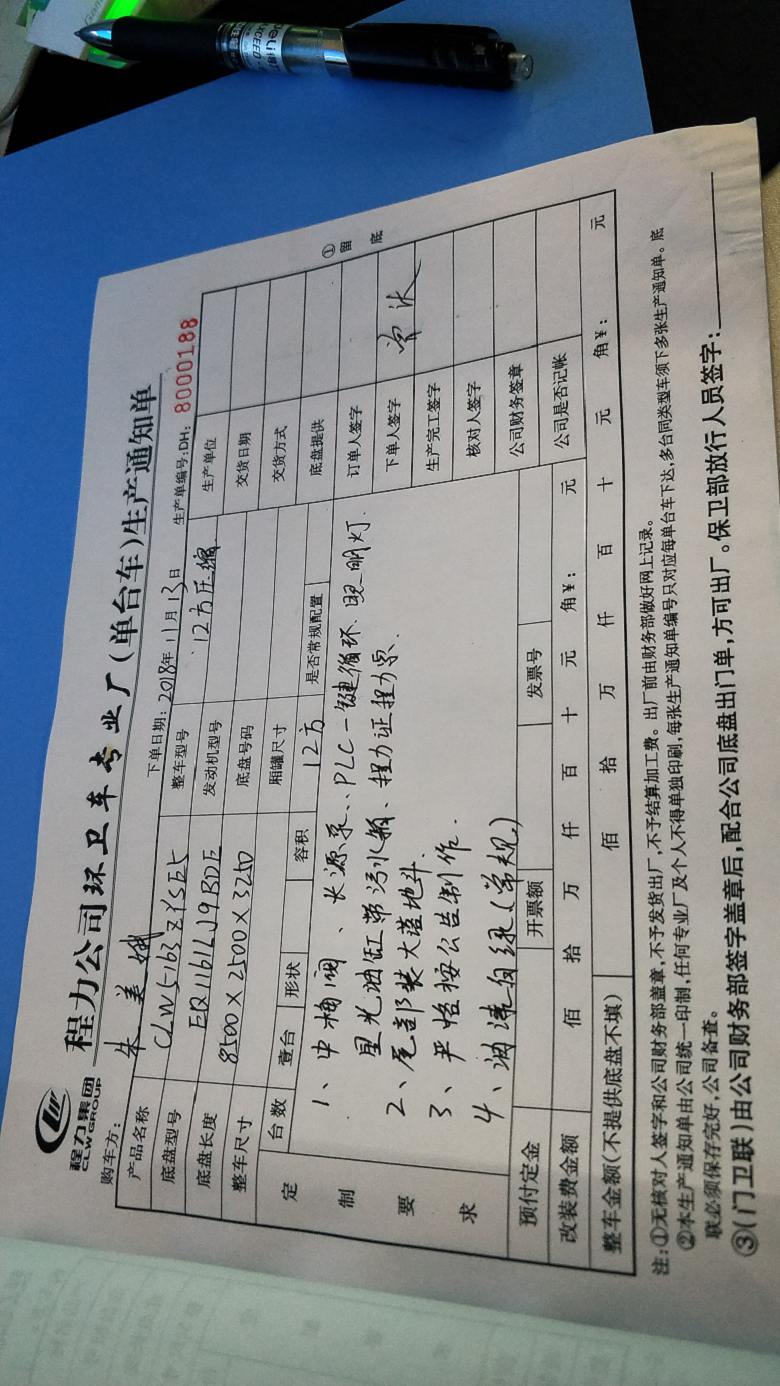 程力集团
CLW GROUP
程力公司环卫车专业厂(单台车)生产通知单
购车方: 朱美娥 下单日期: 2018年11月13日 生产单编号:DH: 8000188
产品名称 CLW5163ZYSE5 整车型号 12方压缩 生产单位
底盘型号 EQ1161LJ9BDE 发动机型号 交货日期
底盘长度 底盘号码 交货方式
整车尺寸 8500×2500×3250 厢罐尺寸 底盘提供
台数 壹台 形状 容积 12方 是否常规配置 订单人签字
定制要求
1、中桶阀、长源泵、PLC一键循环、照明灯.
星光油缸带污水箱、程力证程力票.
2、尾部装大落地斗.
3、严格按公告制作.
4、油漆自绿(常规)
下单人签字
生产完工签字
核对人签字
公司财务签章
公司是否记帐
预付定金 开票额 发票号
改装费金额 佰 拾 万 仟 百 十 元 角¥: 元
整车金额(不提供底盘不填) 佰 拾 万 仟 百 十 元 角¥: 元
①留底
注:①无核对人签字和公司财务部盖章,不予发货出厂,不予结算加工费。出厂前由财务部做好网上记录。
②本生产通知单由公司统一印制,任何专业厂及个人不得单独印刷,每张生产通知单编号只对应每单台车下达,多台同类型车须下多张生产通知单。底
联必须保存完好,公司备查。
③(门卫联)由公司财务部签字盖章后,配合公司底盘出门单,方可出厂。保卫部放行人员签字:
deli